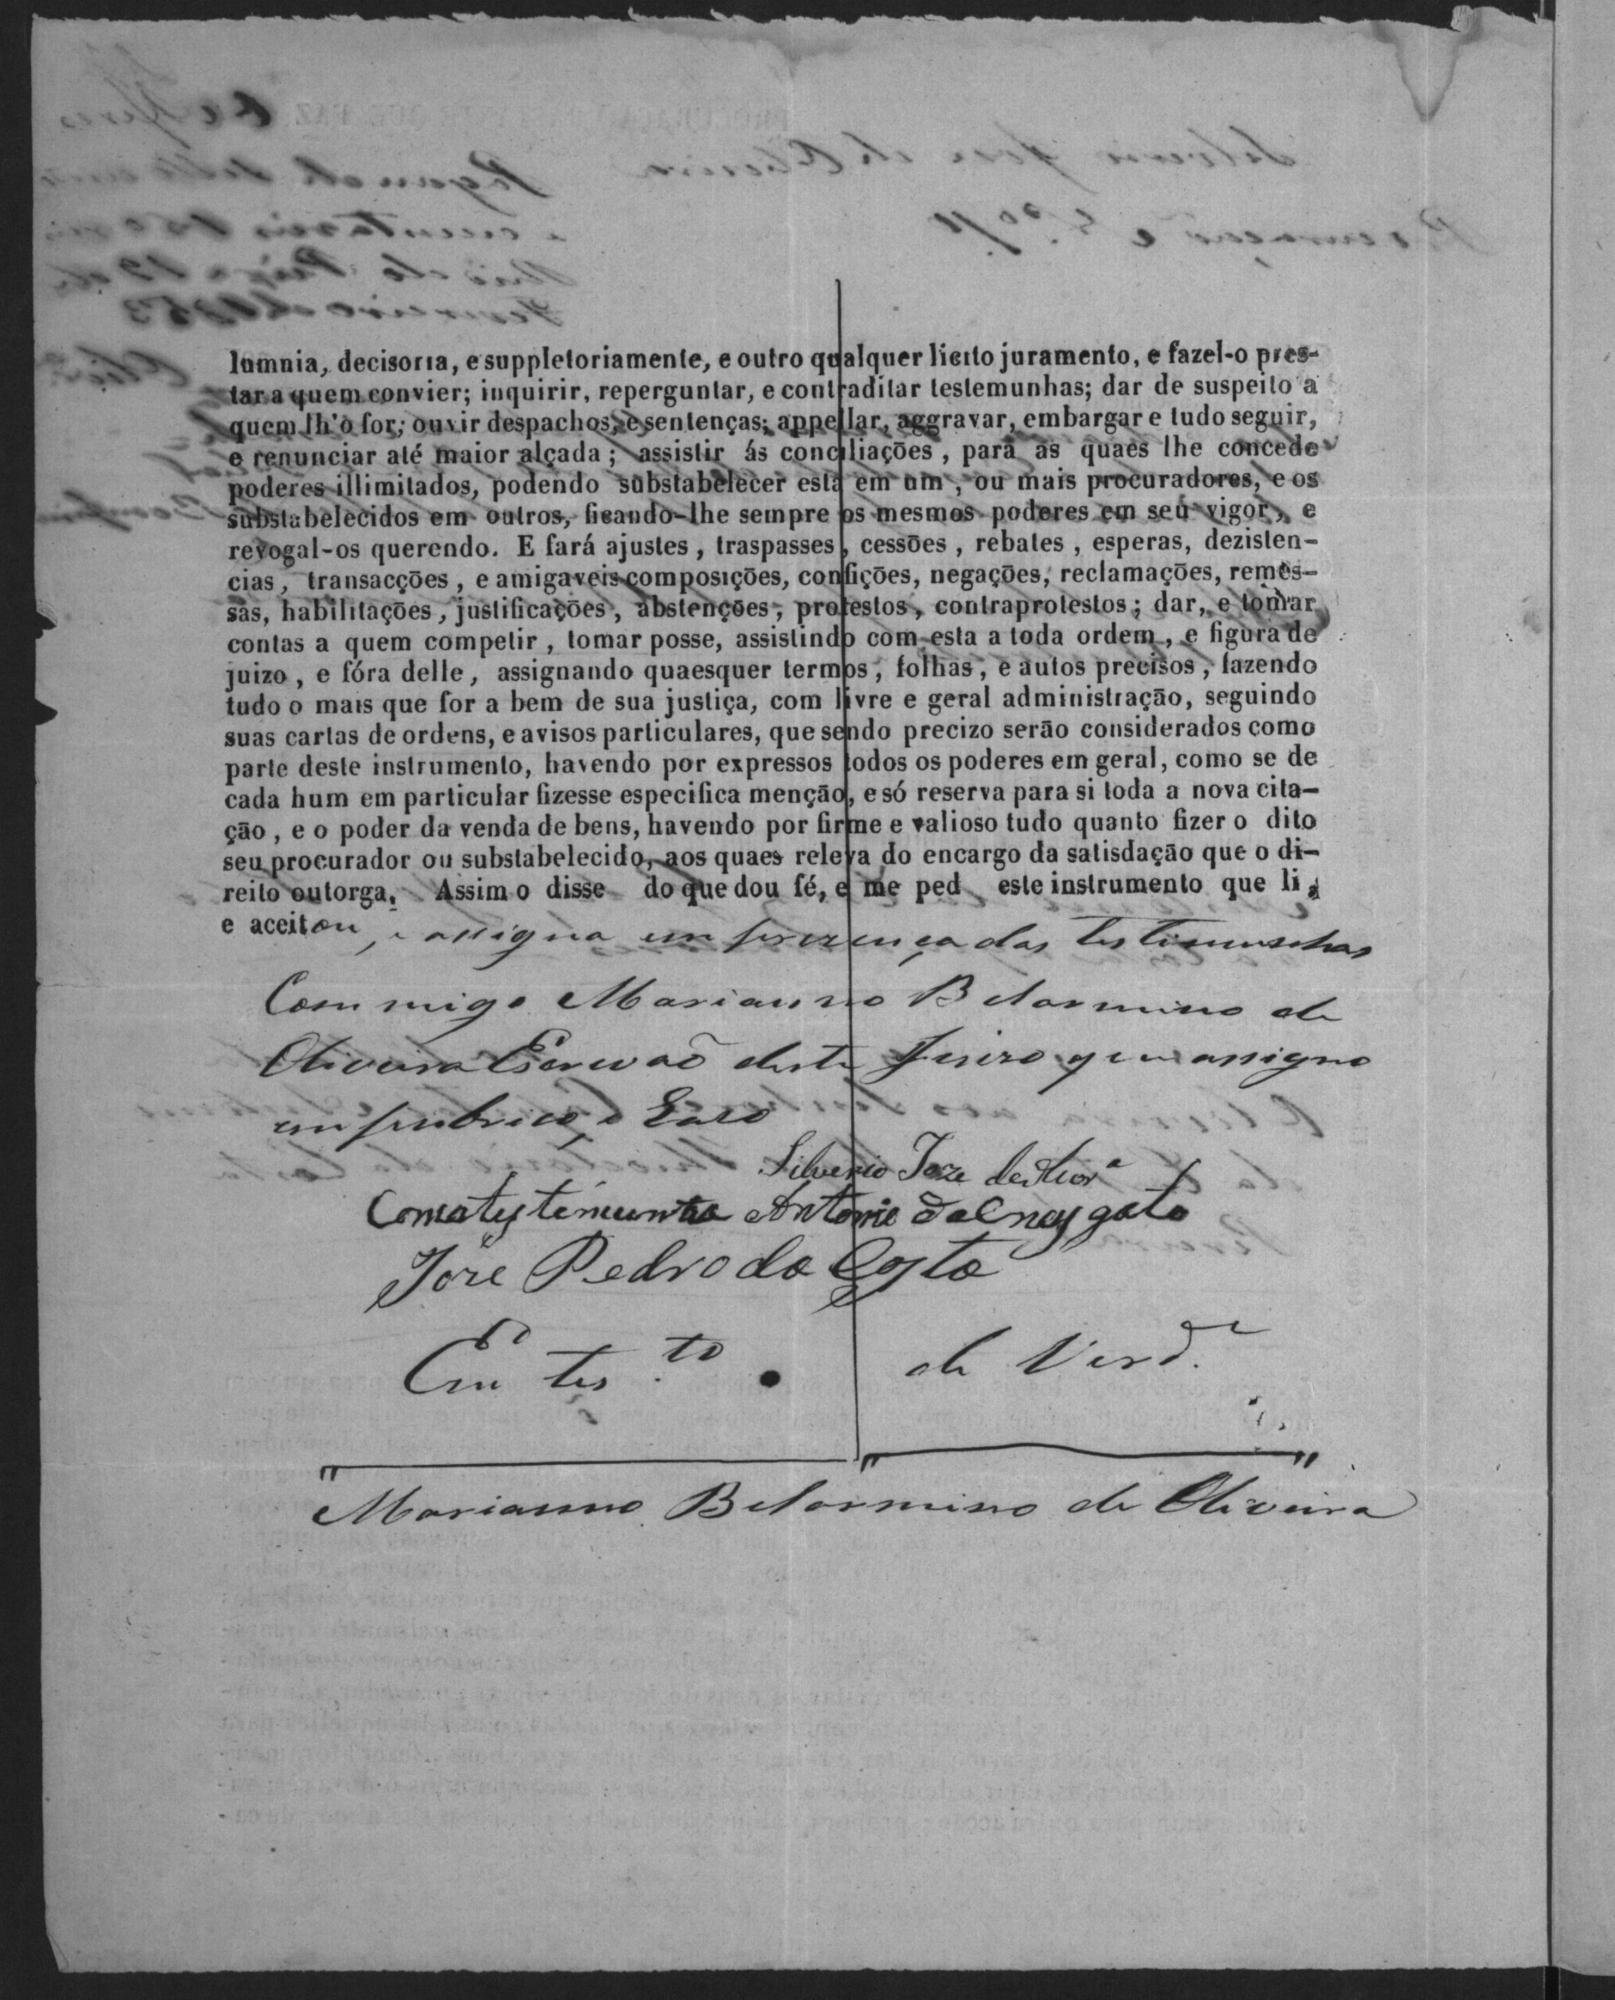 lumnia, decisoria, e suppletoriamente, e outro qualquer licito juramento, e fazel-o pres-
tar a quem convier; inquirir, reperguntar, e contraditar testemunhas; dar de suspeito a
quem lh'o for; ouvir despachos, e sentenças; appellar, aggravar, embargar e tudo seguir,
e renunciar até maior alçada; assistir ás conciliações, para as quaes lhe concede
poderes illimitados, podendo substabelecer esta em um, ou mais procuradores, e os
substabelecidos em outros, ficando-lhe sempre os mesmos poderes em seu vigor, e
revogal-os querendo. E fará ajustes, traspasses, cessões, rebates, esperas, dezisten-
cias, transacções, e amigaveis composições, confições, negações, reclamações, remes-
sas, habilitações, justificações, abstenções, protestos, contraprotestos; dar, e tomar
contas a quem competir, tomar posse, assistindo com esta a toda ordem, e figura de
juizo, e fóra delle, assignando quaesquer termos, folhas, e autos precisos, fazendo
tudo o mais que for a bem de sua justiça, com livre e geral administração, seguindo
suas cartas de ordens, e avisos particulares, que sendo precizo serão considerados como
parte deste instrumento, havendo por expressos todos os poderes em geral, como se de
cada hum em particular fizesse especifica menção, e só reserva para si toda a nova cita-
ção, e o poder da venda de bens, havendo por firme e valioso tudo quanto fizer o dito
seu procurador ou substabelecido, aos quaes releva do encargo da satisdação que o di-
reito outorga. Assim o disse do que dou fé, e me ped este instrumento que li,
e aceitou, e assigna em prezença das testimunhas
Commigo Marianno Belarmino de
Oliveira Escrivaõ deste Juizo que assigno
em publico e Razo
Silverio Joze de Olivrª
Comatestemunha Antonio
Joze Pedro da Costa
Em tes.to de Verd.e
Marianno Belarmino de Oliveira